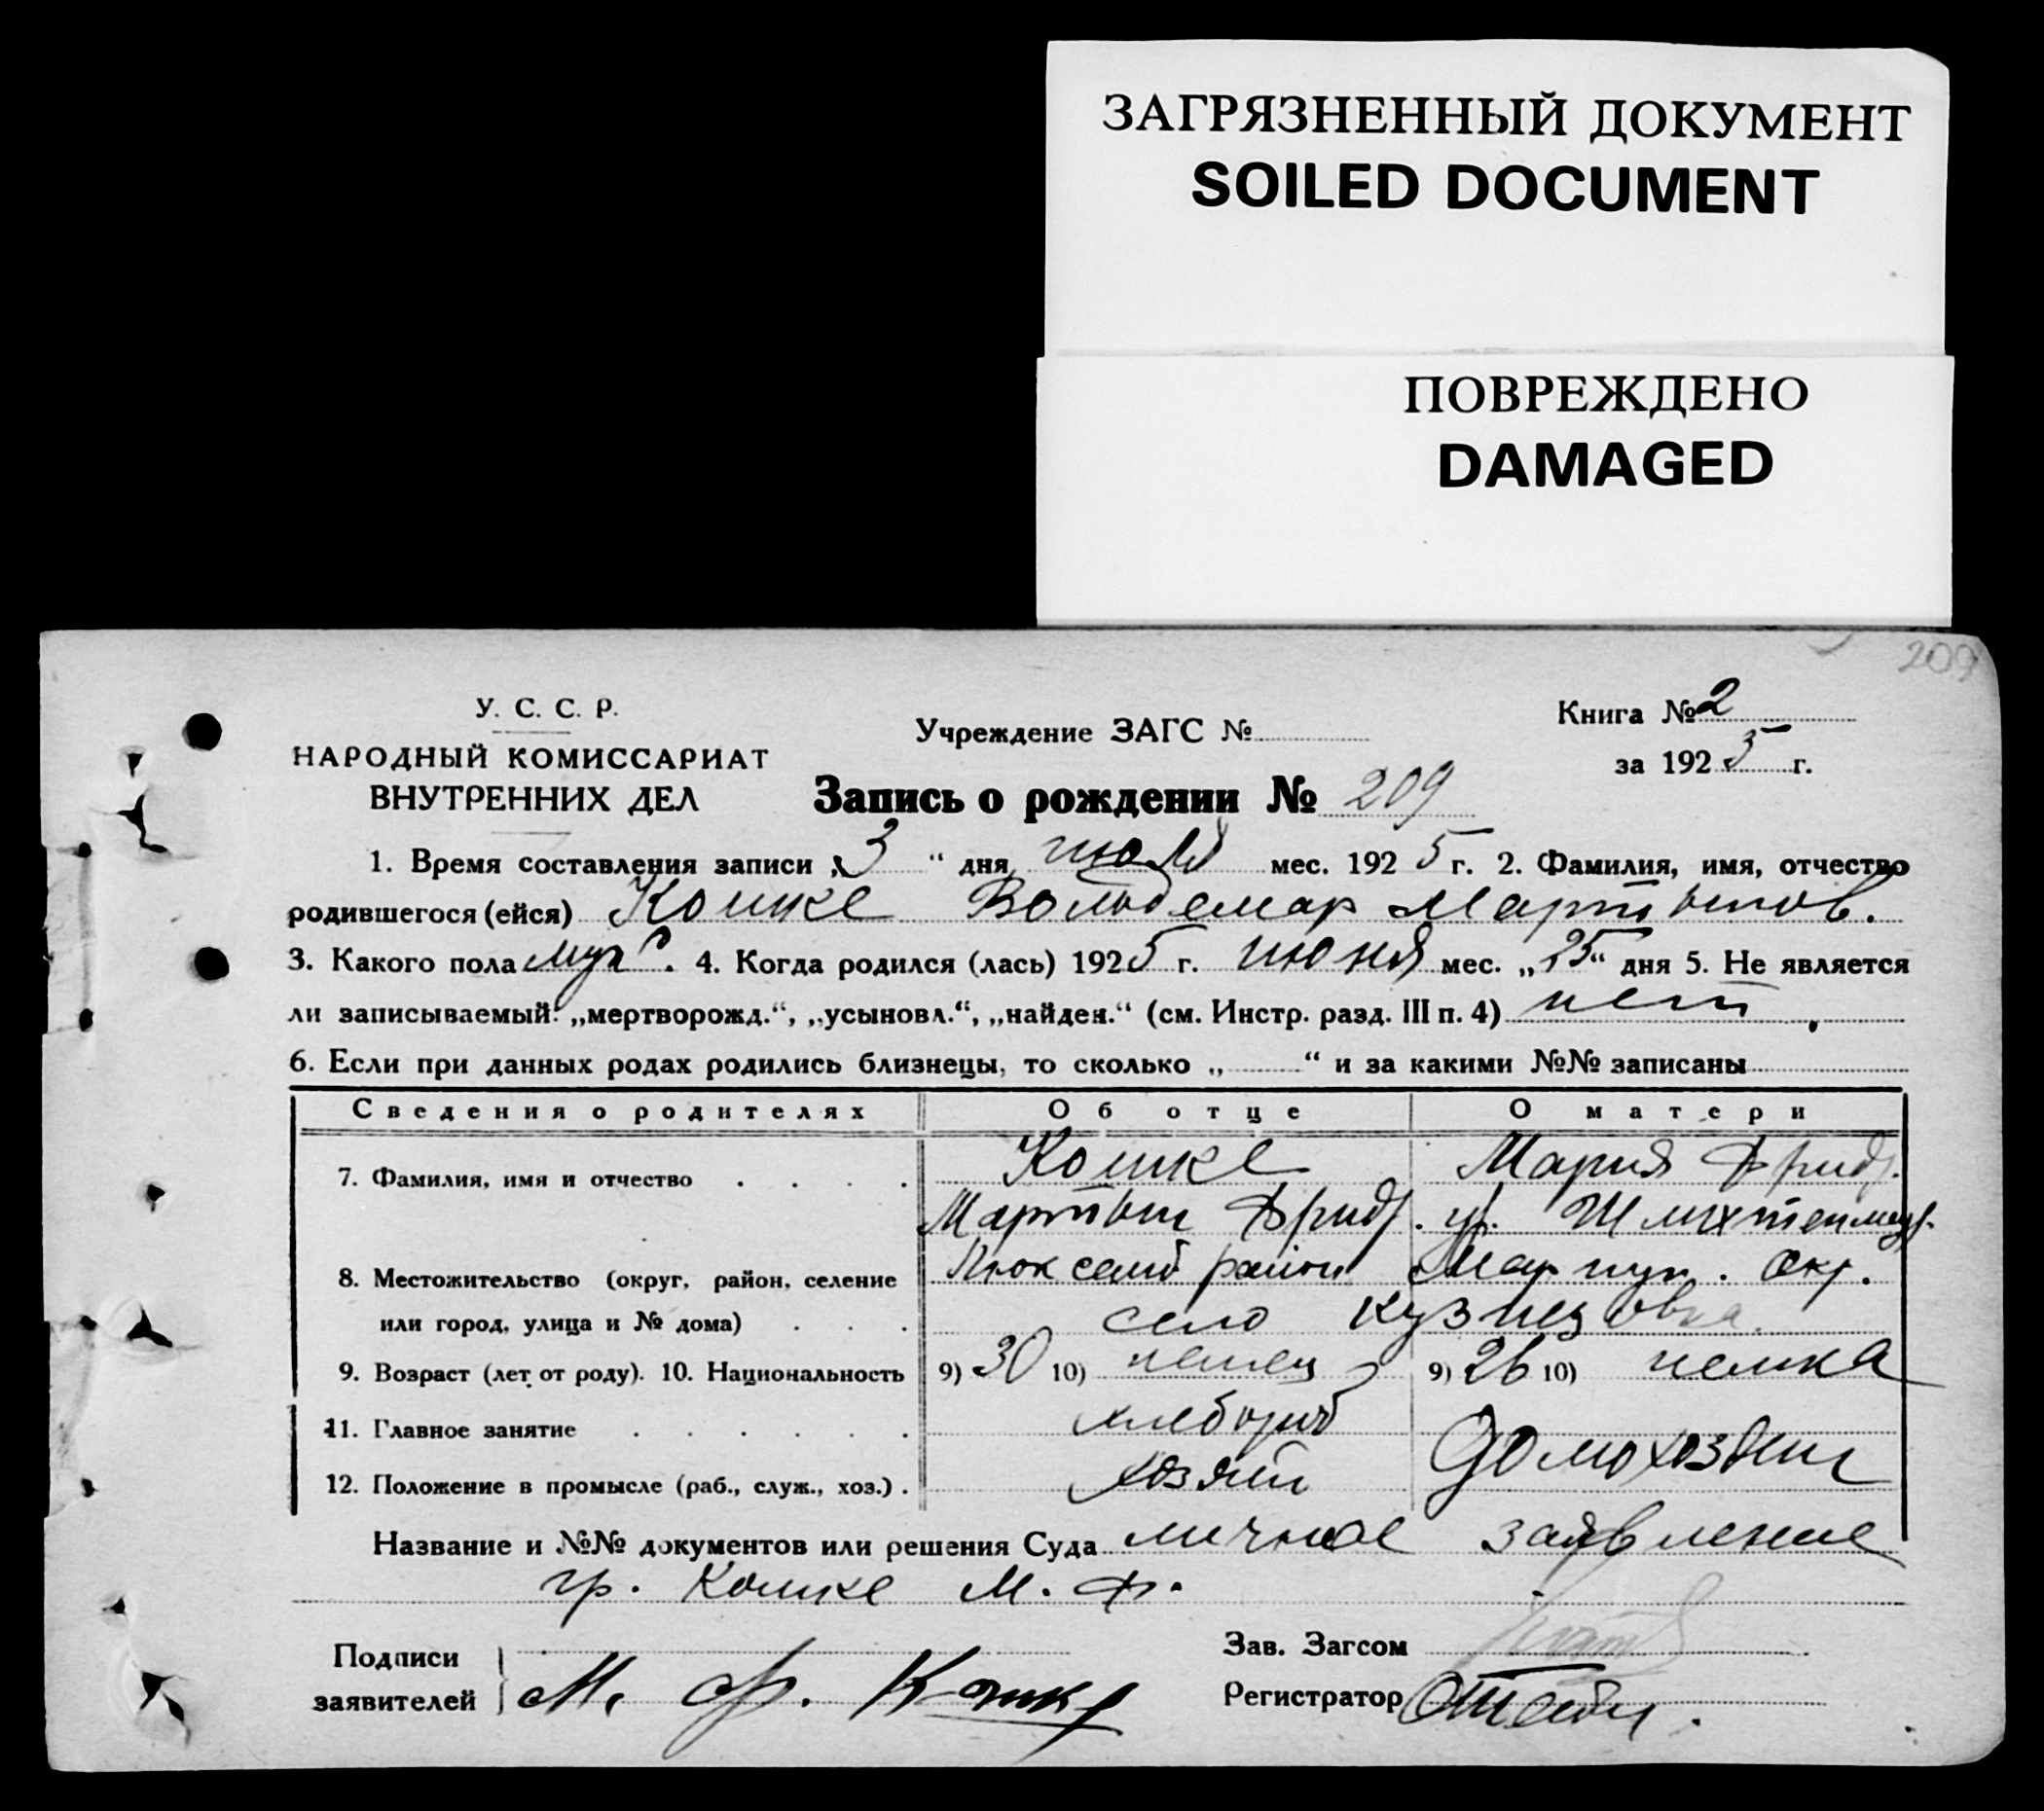 ЗАГРЯЗНЕННЫЙ ДОКУМЕНТ
SOILED DOCUMENT
ПОВРЕЖДЕНО
DAMAGED
209
У. С. С. Р.
НАРОДНЫЙ КОМИССАРИАТ
ВНУТРЕННИХ ДЕЛ
Учреждение ЗАГС №
Книга № 2
за 1925 г.
Запись о рождении № 209
1. Время составления записи „3“ дня июля мес. 1925 г. 2. Фамилия, имя, отчество
родившегося (ейся) Кошке Вольдемар Мартынов.
3. Какого пола муж. 4. Когда родился (лась) 1925 г. июня мес. „25“ дня 5. Не является
ли записываемый: „мертворожд.“, „усыновл.“, „найден.“ (см. Инстр. разд. III п. 4) нет.
6. Если при данных родах родились близнецы, то сколько „ “ и за какими №№ записаны
Сведения о родителях Об отце О матери
7. Фамилия, имя и отчество Кошке Мария Фридр.
Мартын Фридр. ур.
8. Местожительство (округ, район, селение район Мариуп. Окр.
или город, улица и № дома) село Кузнецовка.
9. Возраст (лет от роду). 10. Национальность 9) 30 10) немец 9) 26 10) немка
11. Главное занятие хлебороб
12. Положение в промысле (раб., служ., хоз.) хозяин домохозяин
Название и №№ документов или решения Суда личное заявление
гр. Кошке М. Ф.
Подписи
заявителей М. Ф. Кошке
Зав. Загсом
Регистратор